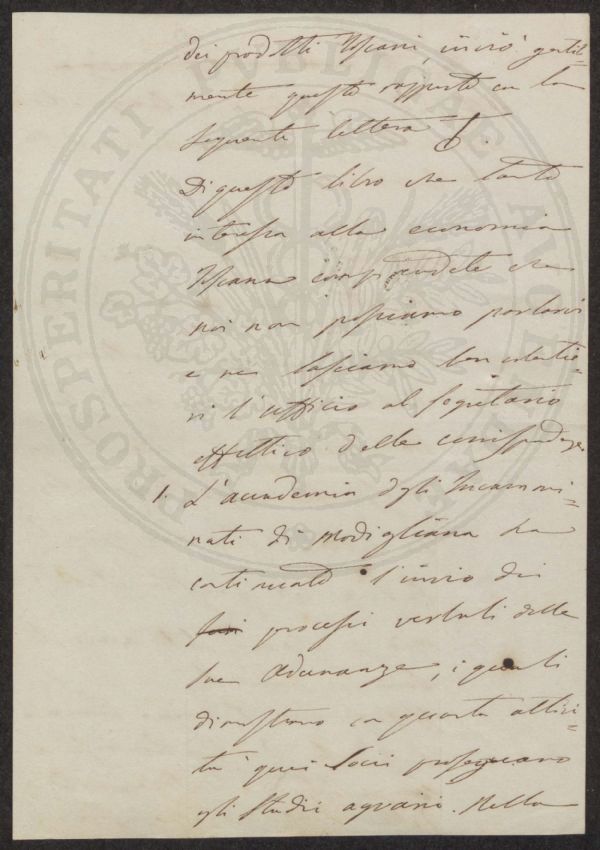 dei prodotti Toscani, inviò gentil=
mente questo rapporto con la
seguente lettera
Di questo libro che tanto
interessa alla economia
Toscana comprendete che
noi non possiamo parlarvi
e ne lasciamo ben volentie=
ri l'ufficio al Segretario
delle corrispondenze
1. L'accademia degli Incammi=
nati di Modigliana ha
continuato l'invio dei
processi verbali delle
sue Adunanze, i quali
dimostrano con quanta attivi=
tà quei Socii proseguano
gli studii agrarii. Nella
PROSPERITATI PUBLICAE AUGENDAE